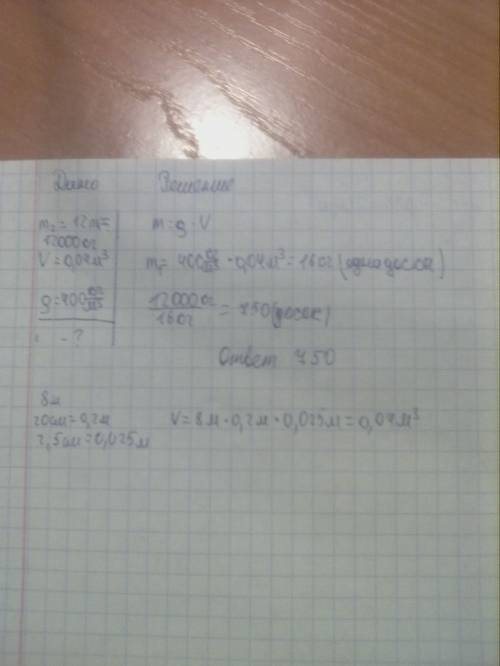 Дано Решение
m₂ = 12 т =
12000 кг
V = 0,04 м³
ρ = 400 кг/м³
- ?
m = ρ · V
m₁ = 400 кг/м³ · 0,04 м³ = 16 кг (одна доска)
12000 кг / 16 кг = 750 (досок)
Ответ 750
8м
20см = 0,2м
2,5см = 0,025м
V = 8м · 0,2м · 0,025м = 0,04м³